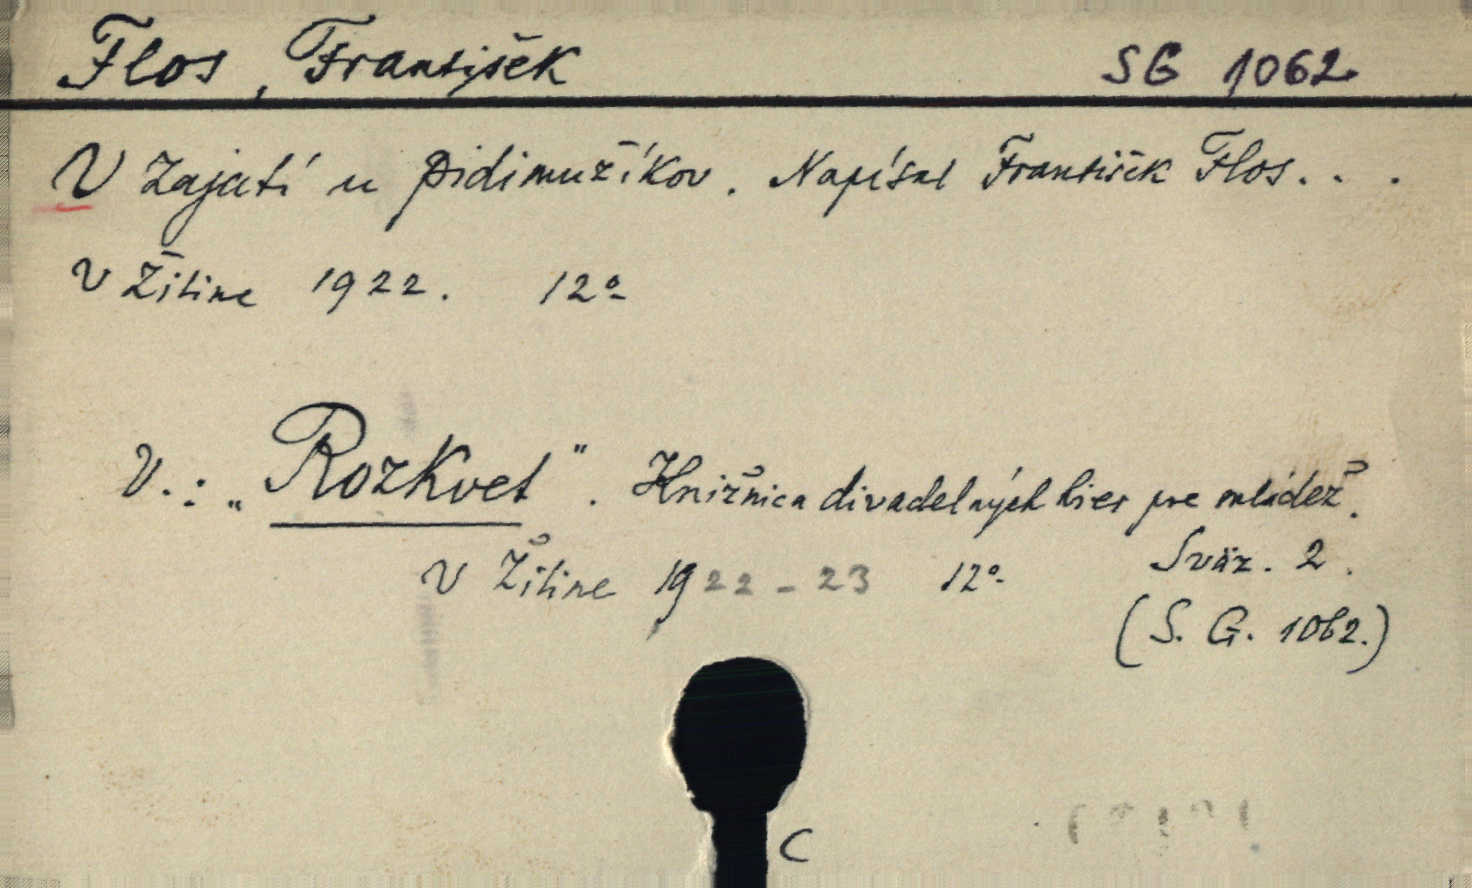 Flos, František SG 1062
V zajatí u pidimužíkov. Napísal František Flos. . .
V Žiline 1922. 12°
V.: „Rozkvet". Knižnica divadelných hier pre mládež.
V Žiline 1922-23 12° Sväz. 2.
(S. G. 1062.)
C